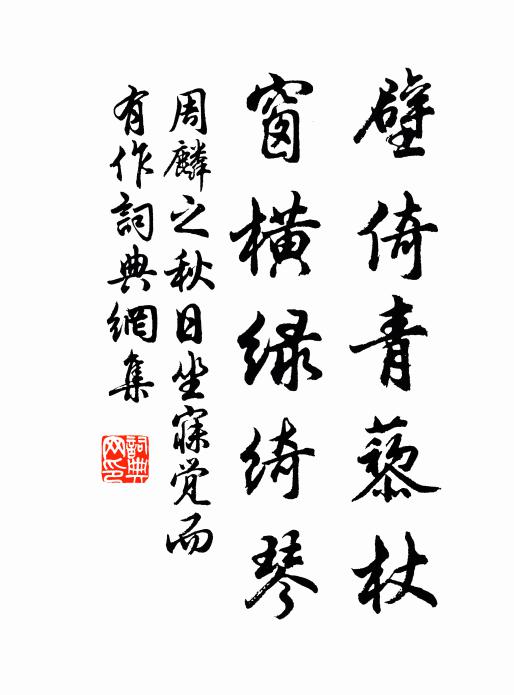 壁倚青藜杖
窗橫绿綺琴
周麟之秋日坐寐觉而
有作詞典網集
詞典网印